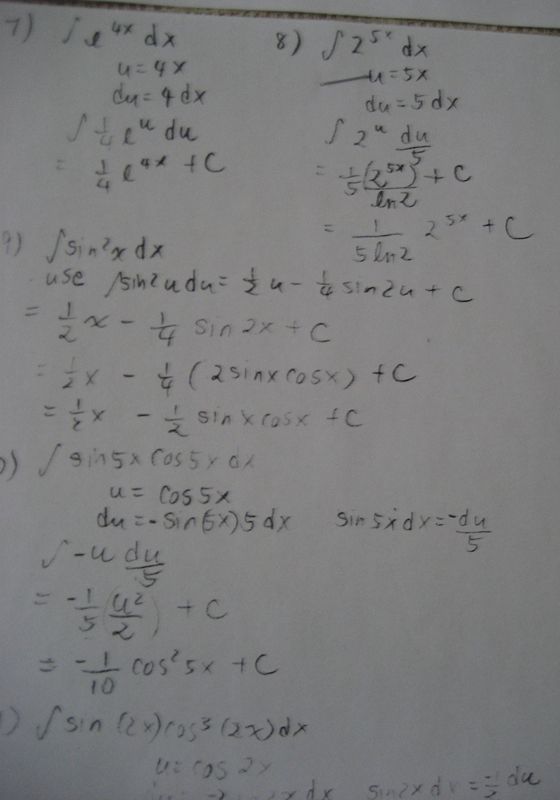 7) ∫ e^{4x} dx
u = 4x
du = 4 dx
∫ 1/4 e^u du
= 1/4 e^{4x} + C
8) ∫ 2^{5x} dx
u = 5x
du = 5 dx
∫ 2^u du/5
= 1/5 (2^{5x})/ln2 + C
= 1/(5 ln2) 2^{5x} + C
9) ∫ sin²x dx
use ∫ sin²u du = 1/2 u - 1/4 sin2u + C
= 1/2 x - 1/4 sin 2x + C
= 1/2 x - 1/4 (2 sinx cosx) + C
= 1/2 x - 1/2 sin x cos x + C
) ∫ sin5x cos5x dx
u = cos5x
du = -sin(5x) 5 dx sin 5x dx = -du/5
∫ -u du/5
= -1/5 (u²/2) + C
= -1/10 cos²5x + C
) ∫ sin (2x) cos³ (2x) dx
u = cos 2x
2x dx sin2x dx = -1/2 du